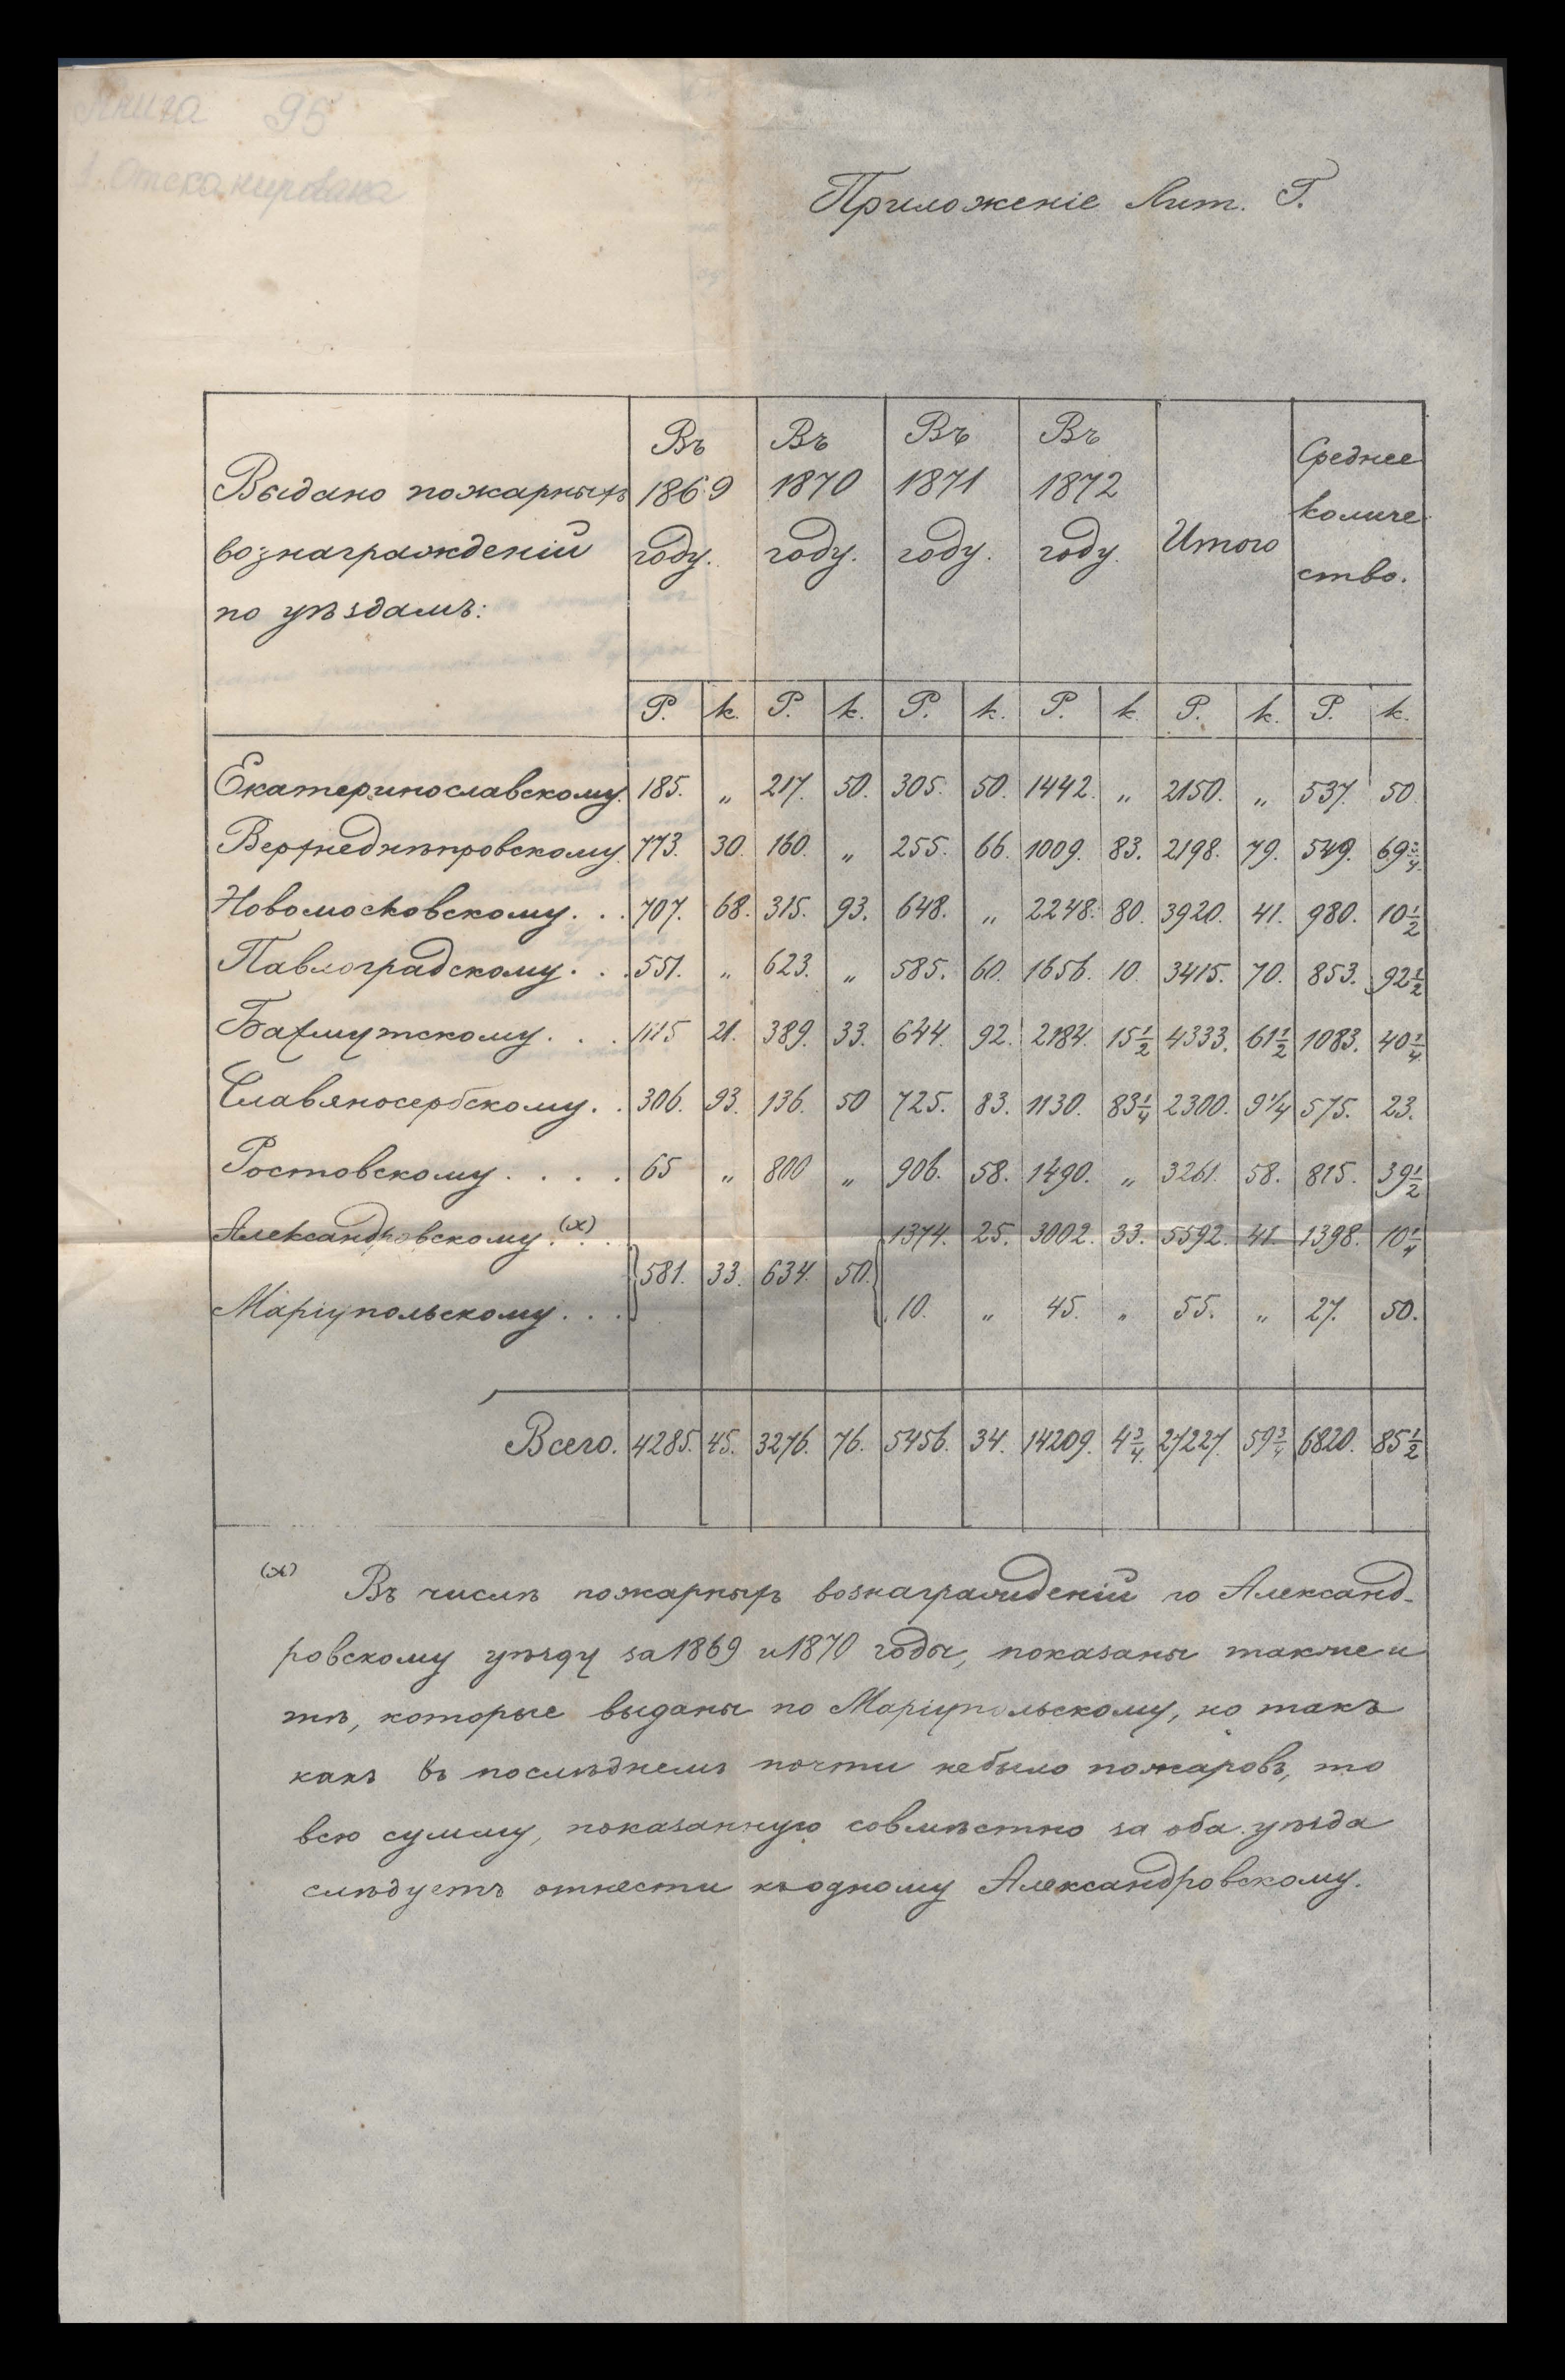 Книга 95
1. Отсканирована
Приложеніе Лит. Г.
Выдано пожарныхъ вознагражденій по уѣздамъ: Въ 1869 году. Въ 1870 году. Въ 1871 году. Въ 1872 году Итого Среднее количе ство.
Р. к. Р. к. Р. к. Р. к Р. к. Р. к.
Екатеринославскому. 185. „ 217. 50. 305. 50. 1442. „ 2150. „ 537. 50.
Верхнеднѣпровскому 773. 30. 160. „ 255. 66. 1009. 83. 2198. 79. 549. 69 3/4.
Новомосковскому. . . 707. 68. 315. 93. 648. „ 2248. 80. 3920. 41. 980. 10 1/2
Павлоградскому. . . 551. „ 623. „ 585. 60. 1656. 10. 3415. 70. 853. 92 1/2
Бахмутскому. . . 1115 21. 389. 33. 644. 92. 2184. 15 1/2 4333. 61 1/2 1083. 40 1/4
Славяносербскому. . 306. 93. 136. 50 725. 83. 1130. 83 1/4 2300. 9 1/4 575. 23.
Ростовскому. . . . 65 „ 800 „ 906. 58. 1490. „ 3261. 58. 815. 39 1/2
Александровскому. (х) . 1374. 25. 3002. 33. 5592. 41. 1398. 10 1/4
581. 33. 634. 50.
Маріупольскому. . . 10. „ 45. „ 55. „ 27. 50.
Всего. 4285. 45. 3276. 76. 5456. 34. 14209. 4 3/4. 27227. 59 3/4 6820. 85 1/2
(х) Въ числѣ пожарныхъ вознагражденій по Александ-
ровскому уѣзду за 1869 и 1870 годы, показаны также и
тѣ, которые выданы по Маріупольскому, но такъ
какъ въ послѣднемъ почти небыло пожаровъ, то
всю сумму, показанную совмѣстно за оба уѣзда
слѣдуетъ отнести къ одному Александровскому.